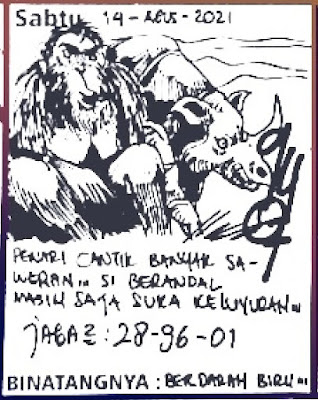 Sabtu 14 - AGUS - 2021
PENARI CANTIK BANYAK SA-
WERAN... SI BERANDAL
MASIH SAJA SUKA KELUYURAN...
JAGA2 : 28-96-01
BINATANGNYA : BERDARAH BIRU...